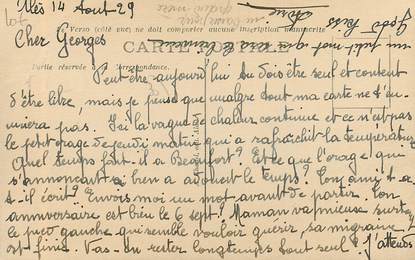 Alès 14 Aout 29
Cher Georges
Verso (côté vue) ne doit comporter aucune inscription manuscrite
CARTE POSTALE
Partie réservée à la correspondance.
Peut-être aujourd'hui tu dois être seul et content
d'être libre, mais je pense que malgré tout ma carte ne t'en-
nuiera pas. Ici la vague de chaleur continue et ce n'est pas
le petit orage de jeudi matin qui a rafraîchit la température
Quel temps fait-il à Beaufort? Est-ce que l'orage qui
s'annonçait a bien adouci le temps? Ton ami t-a-
t-il écrit? Envois moi un mot avant de partir. Ton
anniversaire est bien le 6 sept? Maman va mieux surtout
le pied gauche qui semble vouloir guérir, sa migraine
est finie. Vas-tu rester longtemps tout seul? J'attends
un petit mot
Good kiss